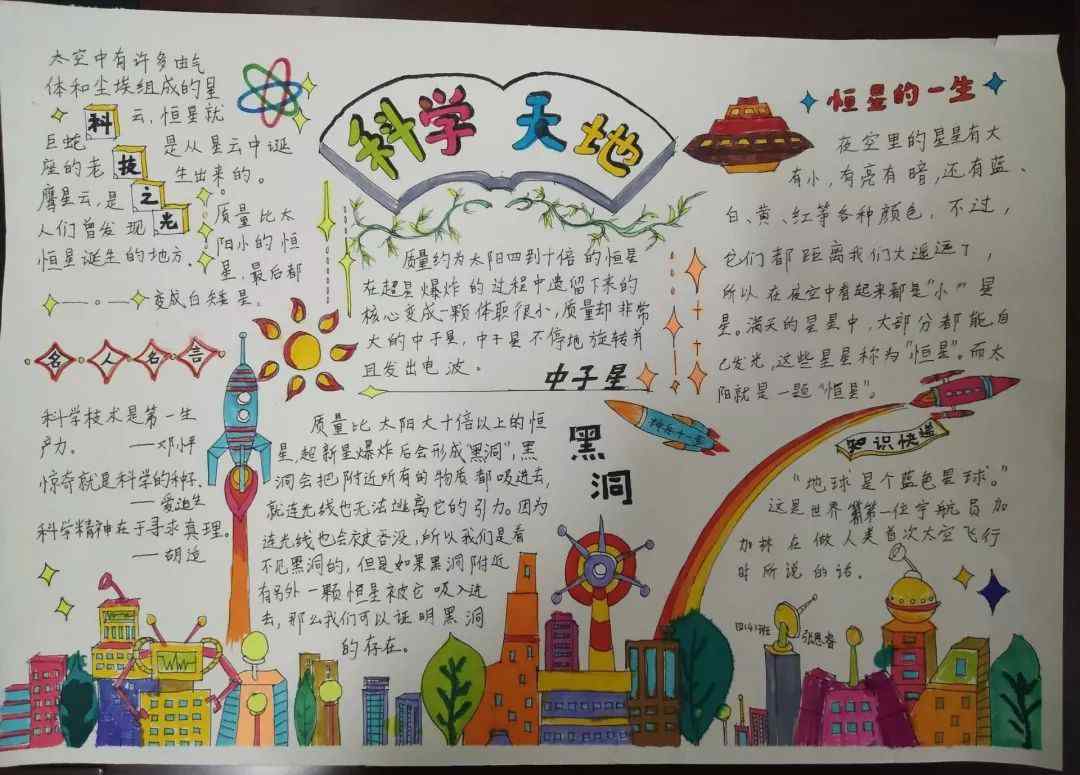 科学天地
太空中有许多由气
体和尘埃组成的星
云,恒星就
巨蛇
是从星云中诞
座的老
生出来的。
鹰星云,是
人们曾发现
恒星诞生的地方。
科
技
之
光
质量比太
阳小的恒
星,最后都
变成白矮星。
名人名言
科学技术是第一生
产力。
——邓小平
惊奇就是科学的种籽.
——爱迪生
科学精神在于寻求真理。
——胡适
质量约为太阳四到十倍的恒星
在超星爆炸的过程中遗留下来的
核心变成一颗体积很小,质量却非常
大的中子星,中子星不停地旋转并
且发出电波。
中子星
质量比太阳大十倍以上的恒
星,超新星爆炸后会形成"黑洞",黑
洞会把附近所有的物质都吸进去,
就连光线也无法逃离它的引力。因为
连光线也会被吞没,所以我们是看
不见黑洞的,但是如果黑洞附近
有另外一颗恒星被它吸入进
去,那么我们可以证明黑洞
的存在。
黑
洞
恒星的一生
夜空里的星星有大
有小,有亮有暗,还有蓝、
白、黄、红等各种颜色,不过,
它们都距离我们太遥远了,
所以在夜空中看起来都是"小"星
星。满天的星星中,大部分都能自
己发光,这些星星称为"恒星"。而太
阳就是一颗"恒星"。
神舟十一号
知识快递
"地球是个蓝色星球。"
这是世界第一位宇航员加
加林在做人类首次太空飞行
时所说的话。
四(4)班
张思睿